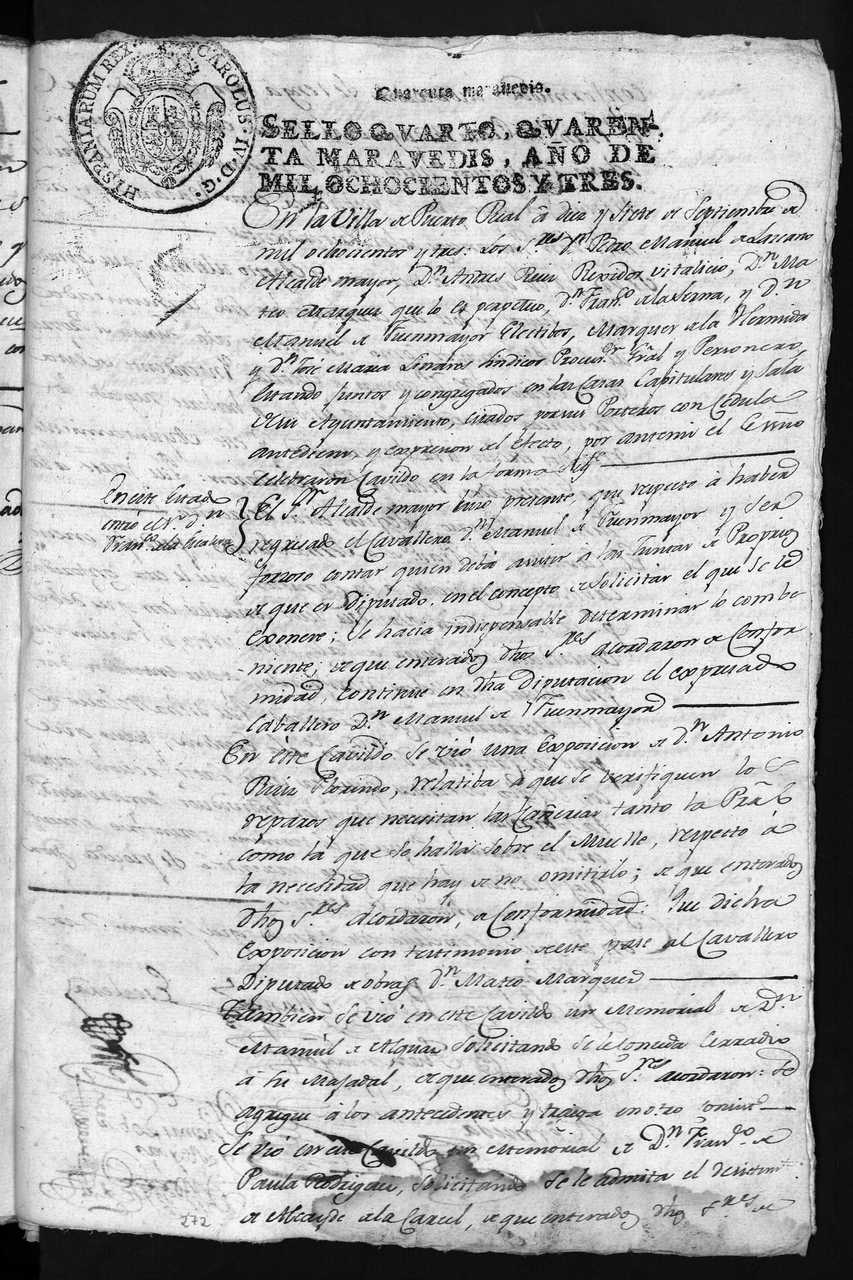 HISPANIARUM REX CAROLUS IV D G
Quarenta maravedis.
SELLO QVARTO, QVAREN-
TA MARAVEDIS, AÑO DE
MIL OCHOCIENTOS Y TRES.
En la Villa de Puerto Real à diez y siete de Septiembre de
mil ochocientos y tres: Los S.res D.n Pedro Manuel de Lazcano
Alcalde mayor, D.n Andres Ruiz Rexidor vitalicio, D.n Ma
teo Marquez que lo es perpetuo, D.n Fran.co de la Serna, y D.n
Manuel de Fuenmayor Electibos, Marquez de la Hermida
y D.n José Maria Linares Sindicos Procur.or Gral y Personero
Estando juntos y congregados en las Casas Capitulares y Sala
de su Ayuntamiento, citados por sus Porteros con Cedula
antediem, y expresion del efecto, por antemi el Essno
celebraron Cavildo en la forma sig.te
En este Estado
entró el S.r d.n
Fran.co de la
El S.or Alcalde mayor hizo presente, que respeto à haber
regresado el Cavallero D.n Manuel de Fuenmayor y ser
forzoso contar quien deba asistir à las Juntas de Proprios
de que es Diputado, en el concepto de solicitar el que se le
exonere; se hacia indispensable determinar lo combe
niente; de que enterados dhos S.res acordaron de Confor
midad, continue en dha Diputacion el expresado
Caballero D.n Manuel de Fuenmayor
En este Cavildo se vió una exposicion de D.n Antonio
Florindo, relatiba à que se verifiquen los
reparos que necesitan las Cañerias tanto la Pral
como la que se halla sobre el Muelle, respecto à
la necesidad que hay de no omitirlo; de que enterados
dhos S.res acordaron, de Conformidad: Que dicha
exposicion con testimonio de este pase al Cavallero
Diputado de obras D.n Mateo Marquez
Tambien se vió en este Cavildo un Memorial de D.n
Manuel de Alquiza solicitando se le conceda Cerradis
à su Majadal, de que enterados dhos S.res acordaron: se
agregue à los antecedentes y traiga en otro
Se vió en este Cavildo un Memorial de D.n Fran.co de
Paula Rodriguez, solicitando se le admita el desistim.to
de Alcayde de la Carcel, de que enterados dhos S.res de
272